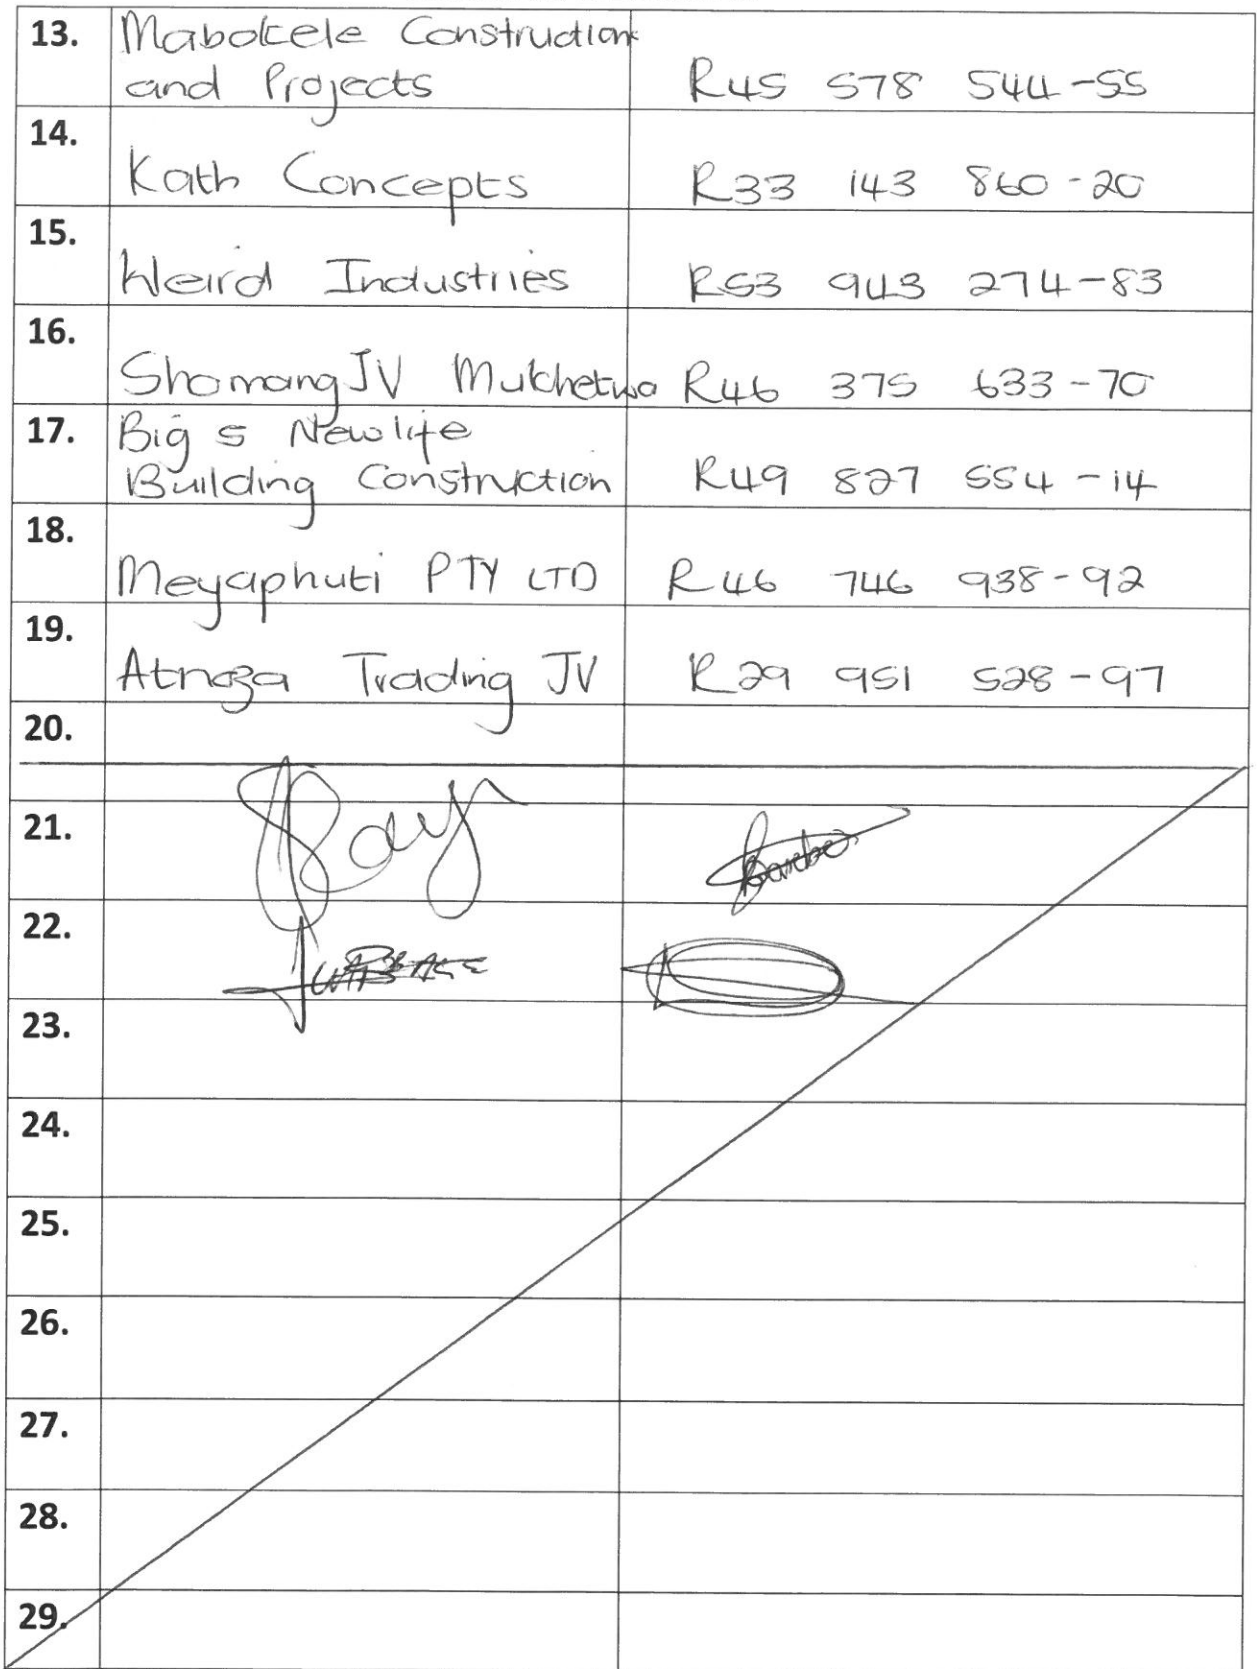 13. Mabokele Construction
and Projects R45 578 544-55
14.
Kath Concepts R33 143 860-20
15.
Weird Industries R53 943 274-83
16.
Shomang JV Mukhetwa R46 375 633-70
17. Big 5 Newlife
Building Construction R49 827 554-14
18.
Meyaphuti PTY LTD R46 746 938-92
19.
Atnoza Trading JV R29 951 528-97
20.
21.
22.
23.
24.
25.
26.
27.
28.
29.